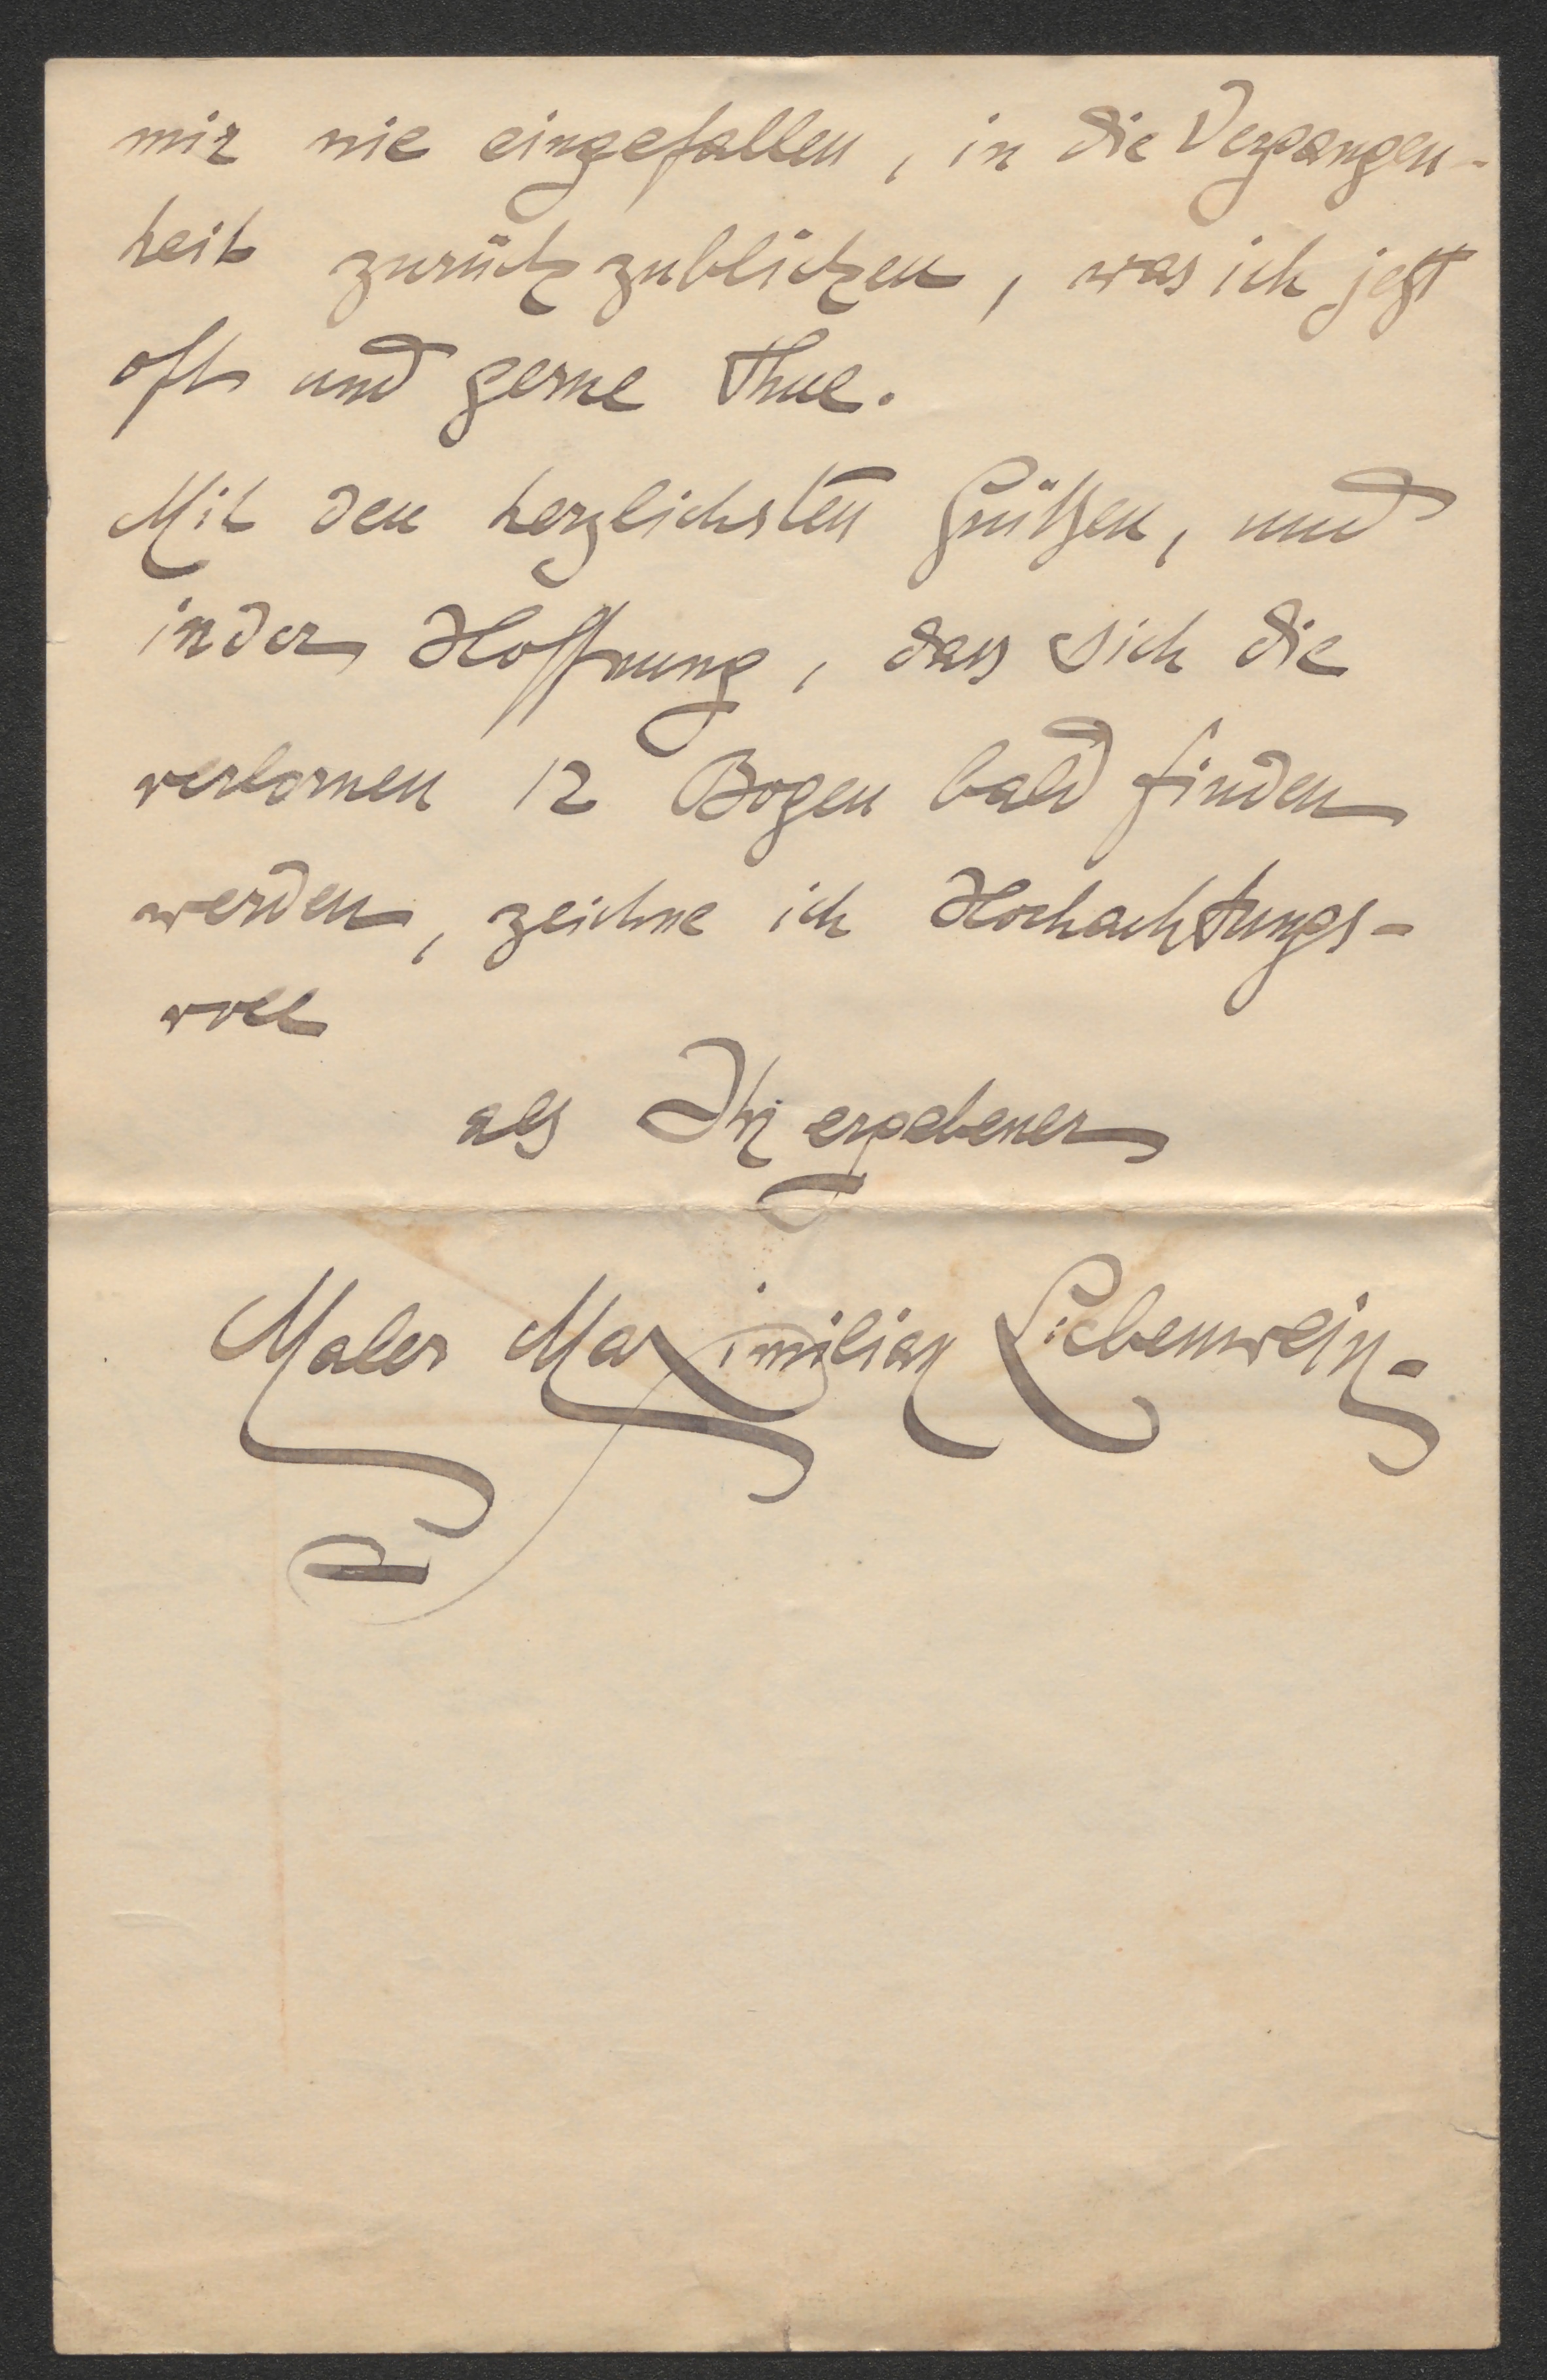 mir nie eingefallen, in die Vergangen-
heit zurückzublicken, was ich jetzt
oft und gerne thue.
Mit den herzlichsten Grüßen, und
in der Hoffnung, dass sich die
verlornen 12 Bogen bald finden
werden, zeichne ich Hochachtungs-
voll
als Ihr ergebener
Maler Maximilian Liebenwein.